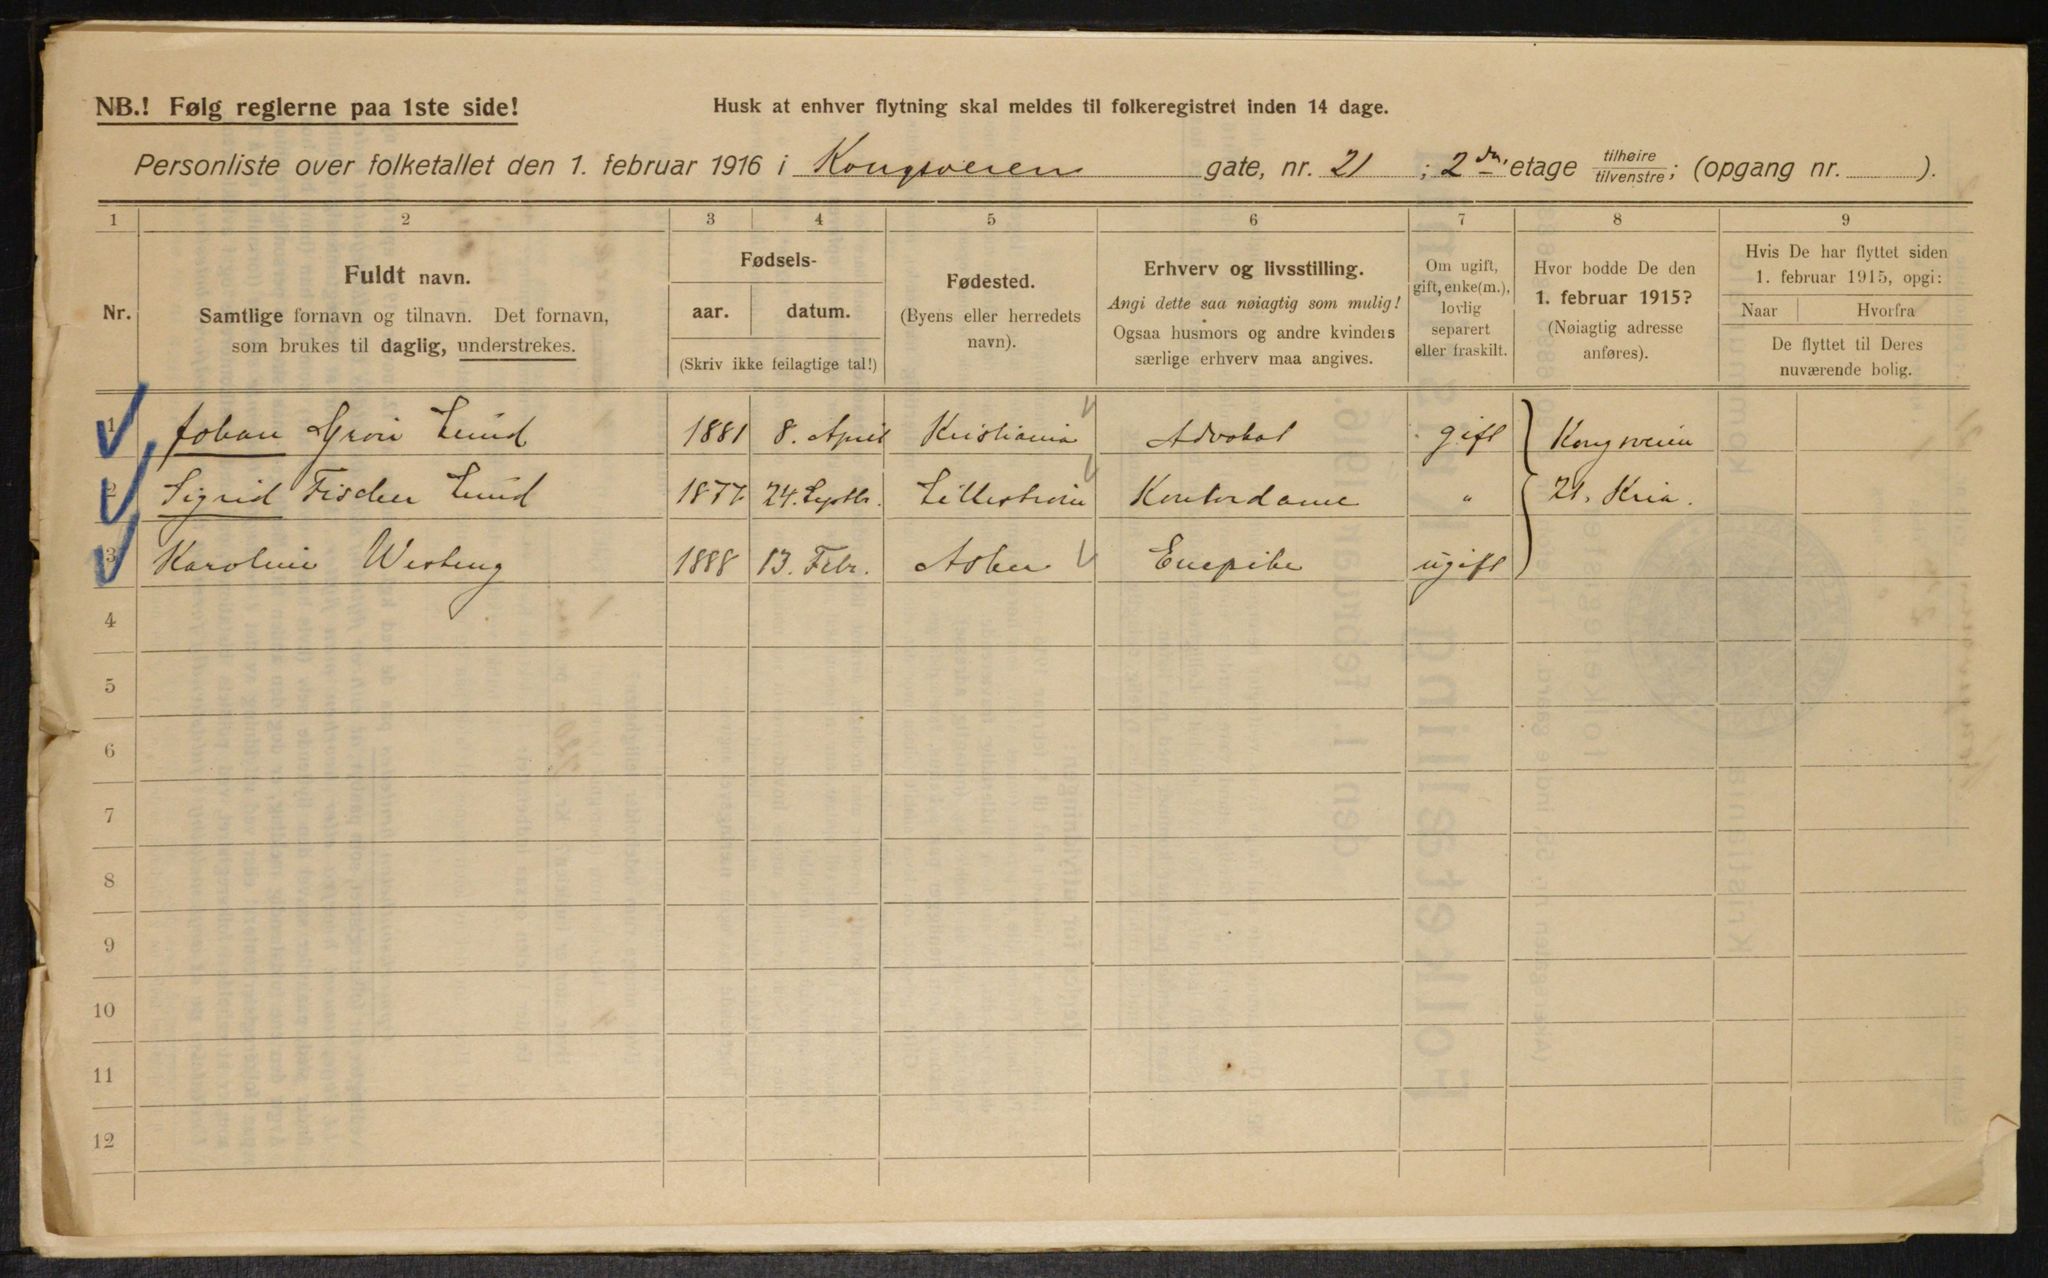 NB.! Følg reglerne paa 1ste side!
Husk at enhver flytning skal meldes til folkeregistret inden 14 dage.
Personliste over folketallet den 1. februar 1916 i Kongsveien gate, nr. 21 ; 2den etage tilhøire tilvenstre; (opgang nr. ).
1 2 3 4 5 6 7 8 9
Nr.
Fuldt navn.
Samtlige fornavn og tilnavn. Det fornavn,
som brukes til daglig, understrekes.
Fødsels-
aar. datum.
(Skriv ikke feilagtige tal!)
Fødested.
(Byens eller herredets
navn).
Erhverv og livsstilling.
Angi dette saa nøiagtig som mulig!
Ogsaa husmors og andre kvinders
særlige erhverv maa angives.
Om ugift,
gift, enke(m.),
lovlig
separert
eller fraskilt.
Hvor bodde De den
1. februar 1915?
(Nøiagtig adresse
anføres).
Hvis De har flyttet siden
1. februar 1915, opgi:
Naar Hvorfra
De flyttet til Deres
nuværende bolig.
1 Johan Grøn Lund 1881 8. April Kristiania Advokat gift Kongsveien
2 Sigrid Fischer Lund 1877 24. Septbr. Lillestrøm Kontordame " 21, Kria.
3 Karoline 1888 13. Febr. Asker Enepike ugift
4
5
6
7
8
9
10
11
12